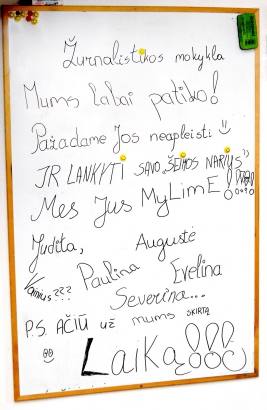 Žurnalistikos mokykla
Mums labai patiko!
Pažadame Jos neapleisti :)
IR LANKYTI SAVO „ŠEIMOS NARIUS“:)
Mes Jus MyLimE!!!!!!!
Judita, Augustė
Vainius??? Paulina Evelina
Severina...
P.S. AČIŪ UŽ mums SKIRTĄ
LaiKą!!!